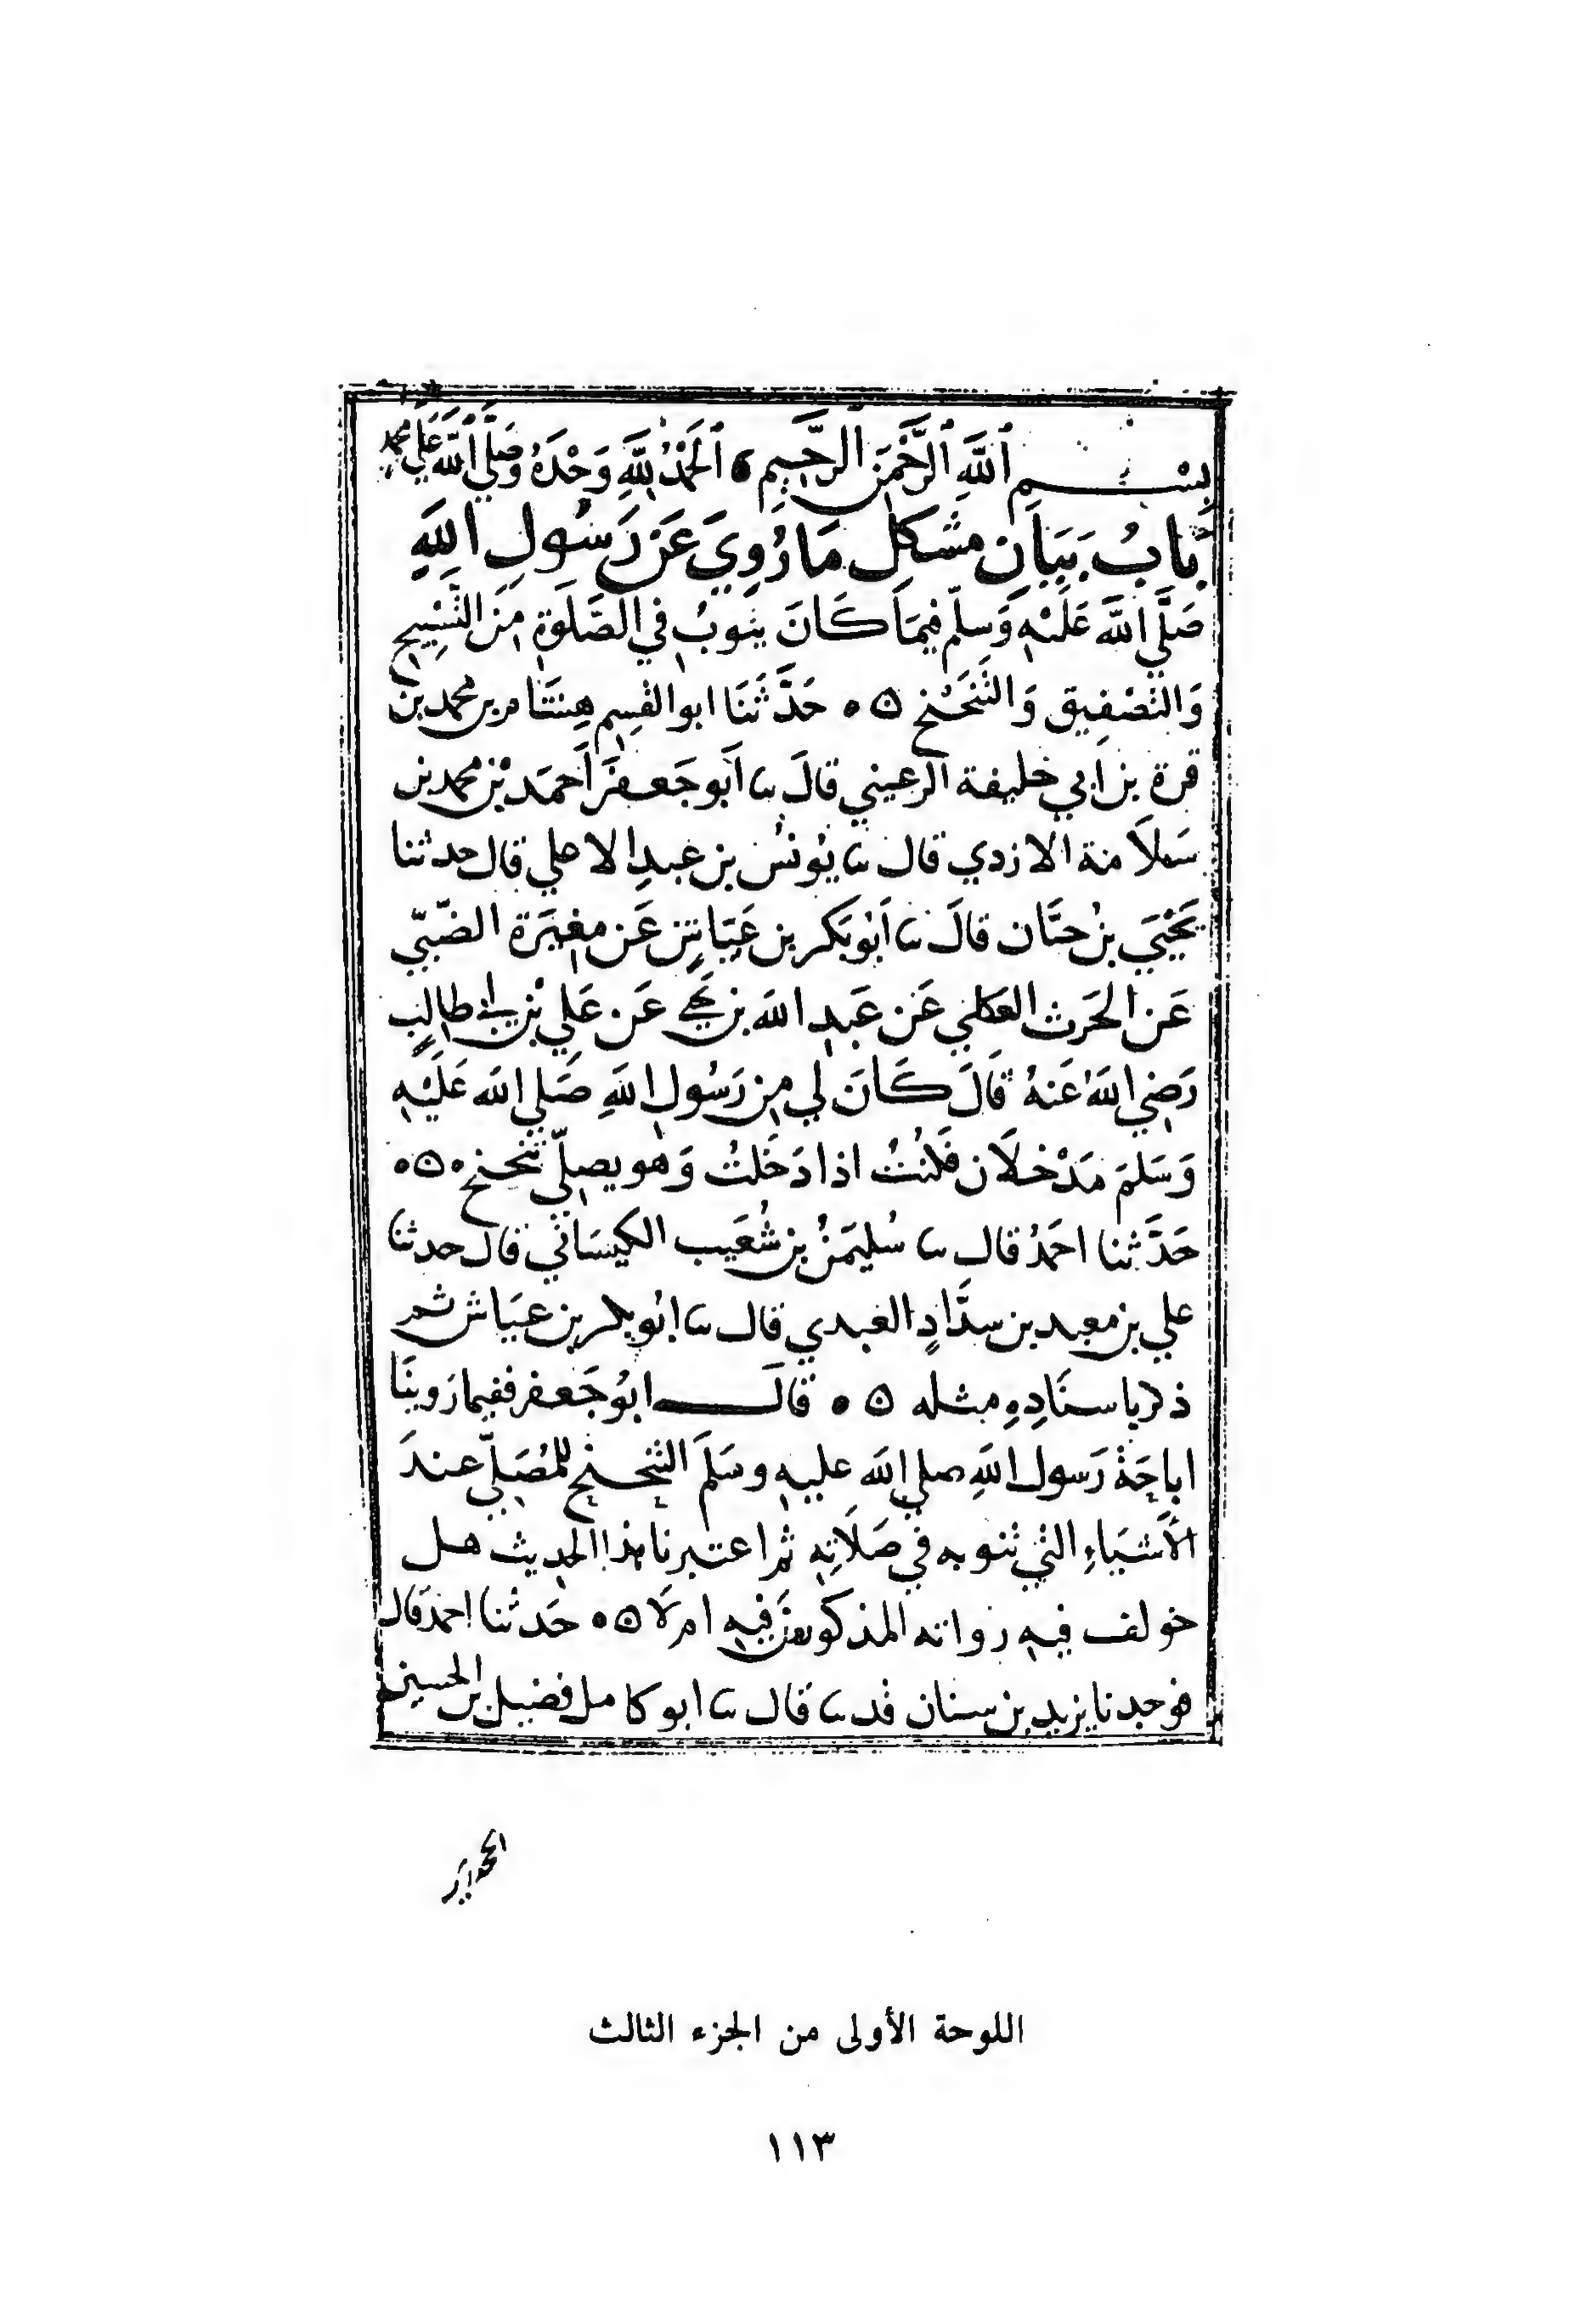 بِسْمِ ٱللَّهِ ٱلرَّحْمَنِ الرَّحِيمِ ٱلحَمْدُ لِلَّهِ وَحْدَهُ وَصَلَّى ٱللَّهُ عَلَي محمد
بابُ بَيَانِ مشكِل مَا رُوِيَ عَن رَسُولِ اللهِ
صَلَّي اللَّهُ عَلَيْهِ وَسلّم فِيمَا كَانَ ينوبُ فِي الصَّلَوةِ مِنَ التَّسْبِيحِ
وَالتَصْفِيق وَالتَّنَحْنُحِ ٥ حَدَّثَنَا ابو القسم هِشَام بن محمد بن
قرة بن ابي خليفة الرعيني قالَ ثنا أَبو جَعفَر أَحمَد بْن محمد بن
سَلاَمة الازدي قال ثنا يُونُس بن عبدِ الاعلي قال حدثنا
يَحْيَي بنُ حسَّان قالَ ثنا أَبُو بَكر بن عَيَّاشٍ عَن مغِيرَة الضّبّيّ
عَن الحَرث العكلي عَن عَبدِ الله بن نجي عَن عَلي بْن ابي طالِبٍ
رَضِي اللهُ عَنهُ قَالَ كَانَ لي مِن رَسُولِ اللهِ صَلي الله عَلَيْهِ
وَسَلمَ مَدْخلَان فَكنتُ اذا دَخَلتُ وَهو يصلّي تنحنح ٥
حَدَّثنا احمَدُ قال ثنا سُليمَنُ بن شُعَيب الكيسَاني قال حدثنا
علي بن معبد بن شدَّادٍ العبدي قال ثنا ابُو بكر بن عيَاش ثم
ذكر باسنَادِهِ مثله ٥ قَالَ ابُو جَعفر ففيما رَوينَا
اباحَةُ رَسول اللهِ صلي الله عليهِ وسَلمَ التنحنح للمُصَلّي عندَ
الأَشيَاءِ التي تنوبه في صَلَاتِهِ ثم اعتبرنا هذا الحديث هل
خولف فيهِ رواته المذكورين فيهِ ام لَا ٥ حَدثنا احمدُ قال
فوجدنا يزيد بن سنان قد ثنا قال ثنا ابو كامل فضيل بن الحسين
الجحدري
اللوحة الأولى من الجزء الثالث
١١٣